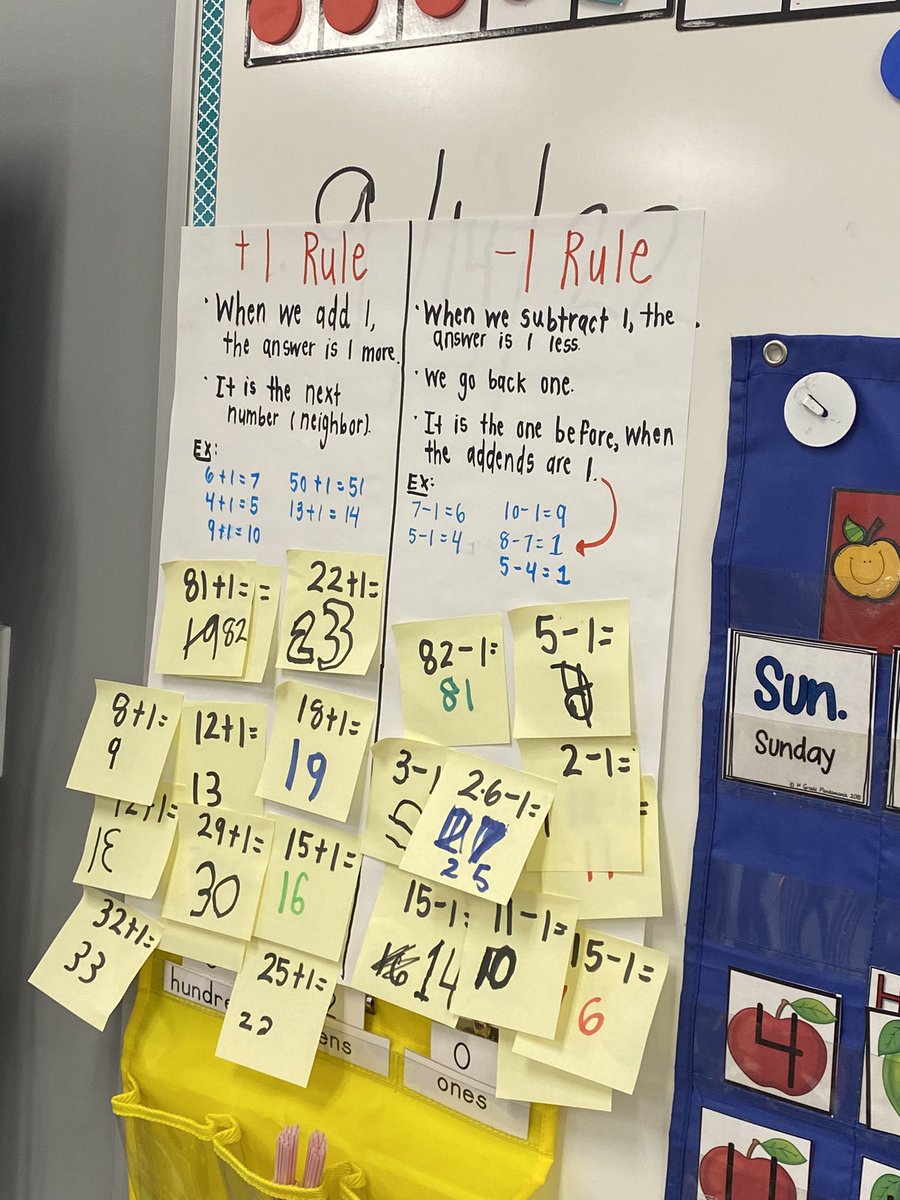 +1 Rule
· When we add 1,
the answer is 1 more.
· It is the next
number (neighbor).
EX:
6+1=7
4+1=5
9+1=10
50+1=51
13+1=14
-1 Rule
· When we subtract 1, the
answer is 1 less.
· We go back one.
· It is the one before, when
the addends are 1.
EX:
7-1=6
5-1=4
10-1=9
8-7=1
5-4=1
81+1=
82
=
22+1=
23
8+1=
9
12+1=
13
18+1=
19
12+1=
29+1=
30
15+1=
16
32+1=
33
25+1=
22
82-1=
81
5-1=
3-1
2-1=
26-1=
25
15-1=
14
11-1=
10
15-1=
6
0
ones
Sun.
Sunday
4